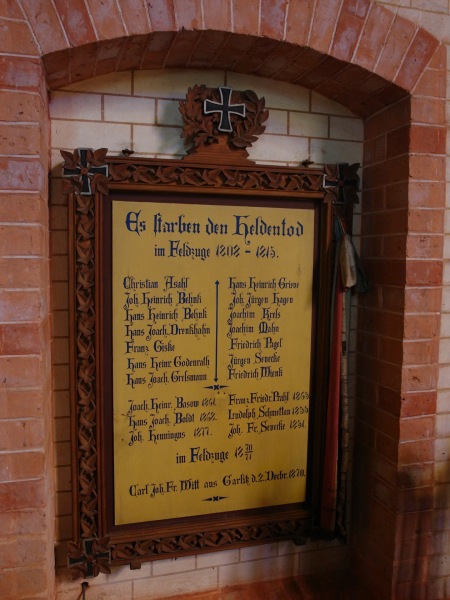 Es starben den Heldentod
im Feldzuge 1808 - 1815.
Christian Asahl
Joh. Heinrich Behnk
Hans Heinrich Behnk
Hans Joach. Drenkhahn
Franz Giske
Hans Heinr. Godenrath
Hans Joach. Gressmann
Hans Heinrich Griese
Joh. Jürgen Hagen
Joachim Kreſs
Joachim Mahn
Friedrich Pagel
Jürgen Severke
Friedrich Wienk
Joach. Heinr. Basow 1861.
Hans Joach. Boldt 1852.
Joh. Hennings 1877.
Franz Friedr. Prahl
Ludolph Schmettau
Joh. Fr. Severke 1851.
im Feldzuge 18 70/71
Carl Joh. Fr. Witt aus Garlitz d. 2. Decbr. 1870.